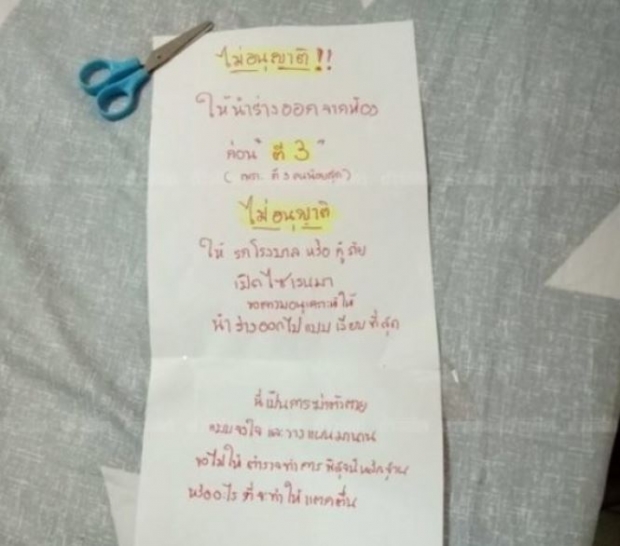 ไม่อนุญาติ!!
ให้นำร่างออกจากห้อง
ก่อน "ตี 3"
( เพราะ ตี 3 คนน้อยสุด )
ไม่อนุญาติ
ให้ รถโรงบาล หรือ กู้ภัย
เปิดไซเรนมา
ขอความอนุเคราะห์ให้
นำร่างออกไปแบบ เงียบที่สุด
นี่เป็นการฆ่าตัวตาย
แบบจงใจ และวางแผนมานาน
ขอไม่ให้ ตำรวจทำการ พิสูจน์หลักฐาน
หรืออะไร ที่จะทำให้แตกตื่น